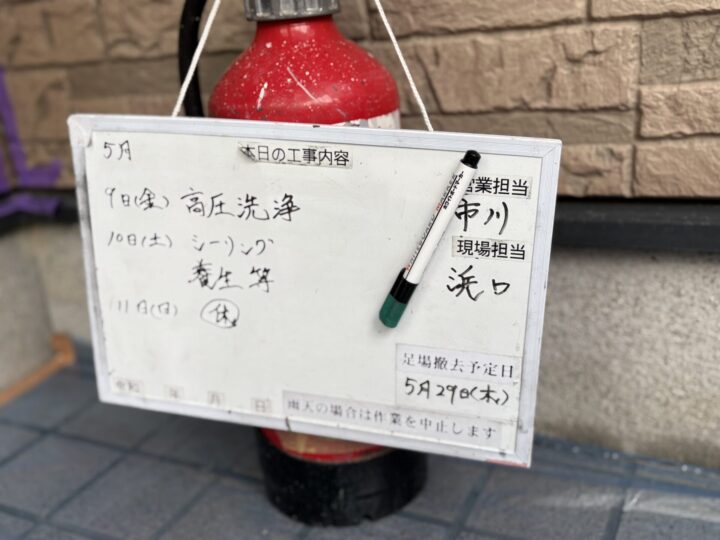 5月
本日の工事内容
9日(金) 高圧洗浄
10日(土) シーリング
養生等
11日(日) 休
営業担当
市川
現場担当
浜口
足場撤去予定日
5月29日(木)
令和 年 月 日
雨天の場合は作業を中止します